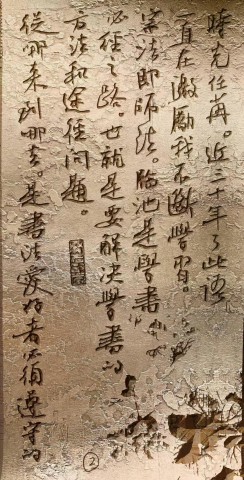 時光任苒。近三十年了此語
一直在激勵我不斷學習。
宗法即師法。臨池是學書
必經之路。也就是要解決學書的
方法和途徑問題。
從哪來到哪去。是書法愛好者必須遵守的
②